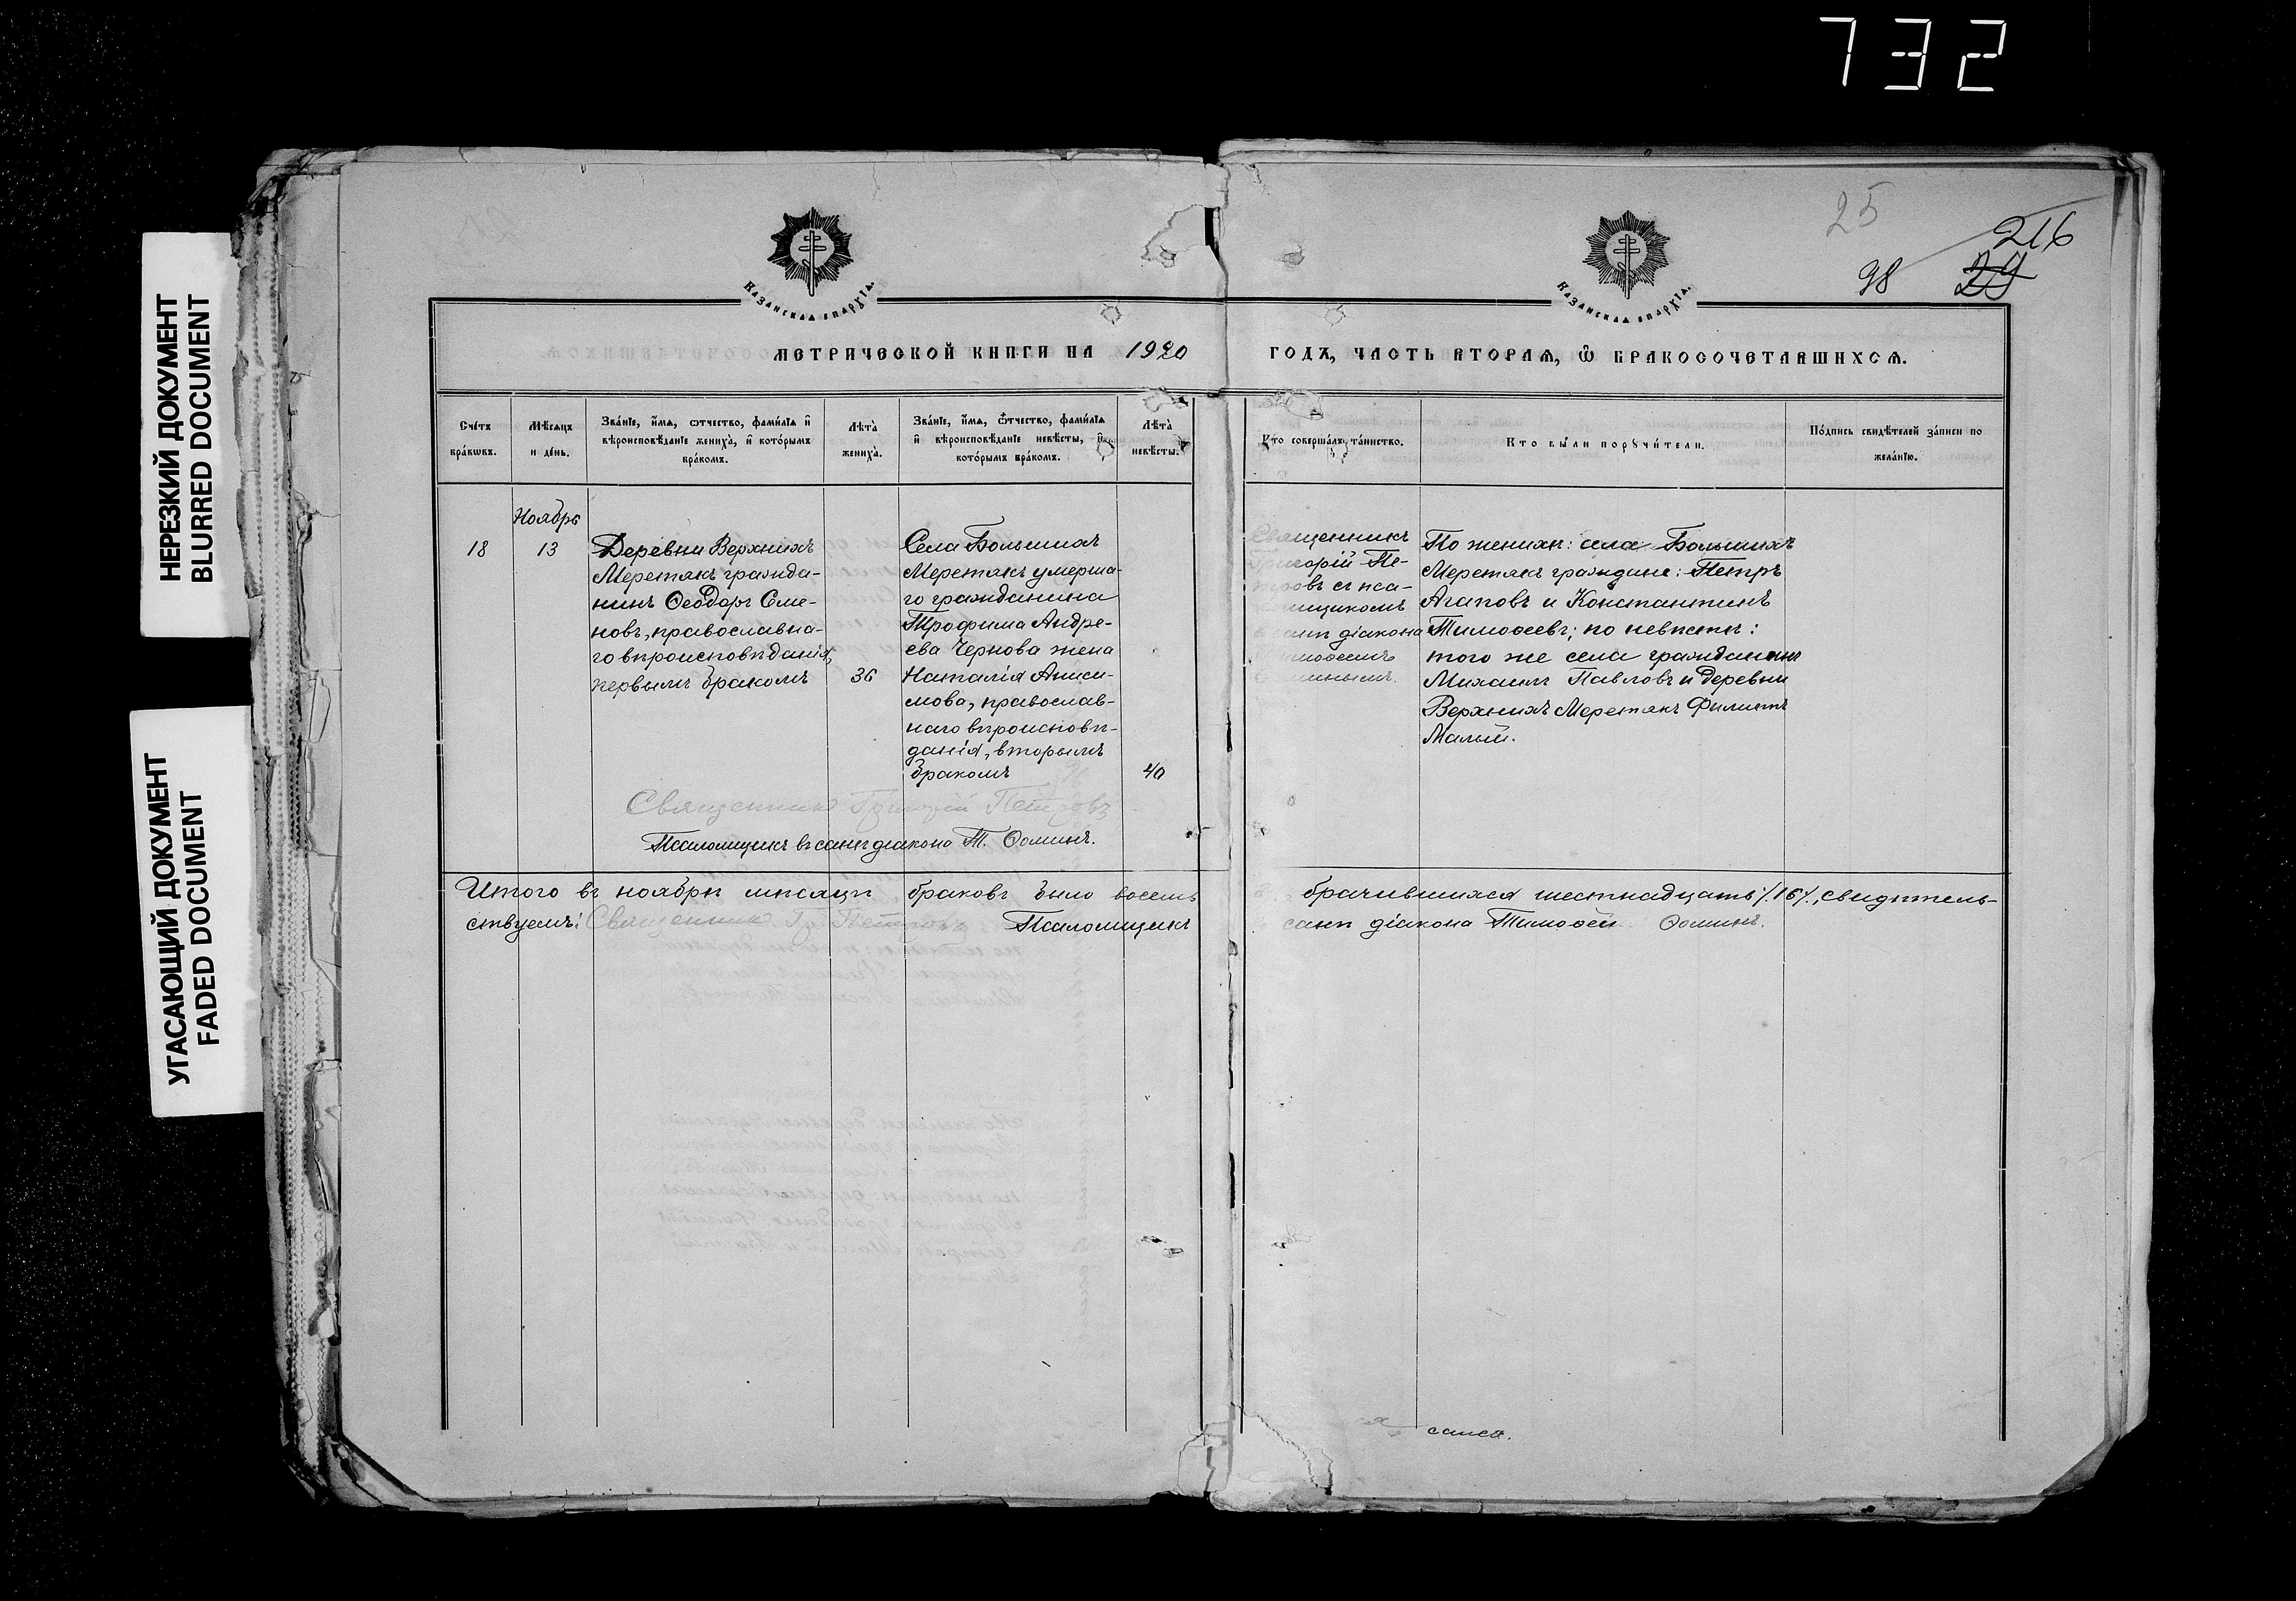 732
НЕРЕЗКИЙ ДОКУМЕНТ
BLURRED DOCUMENT
УГАСАЮЩИЙ ДОКУМЕНТ
FADED DOCUMENT
25
216
98
29
Казанская епархїя.
Казанская епархїя.
МЕТРИЧЕСКОЙ КНИГИ НА 1920
ГОДЪ, ЧАСТЬ ВТОРАѦ, Ѿ БРАКОСОЧЕТАВШИХСѦ.
Сче́тъ бра́кѡвъ.
Мѣ́сѧцъ и де́нь.
Зва́нїе, и҆́мѧ, ѻтчество, фами́лїѧ и҆ вѣроисповѣ́данїе жениха̀, и҆ кото́рымъ бра́комъ.
Лѣта̀ жениха̀.
Зва́нїе, и҆́мѧ, ѻтчество, фами́лїѧ и҆ вѣроисповѣ́данїе невѣ́сты, и҆ кото́рымъ бра́комъ.
Лѣта̀ невѣ́сты.
Кто соверша́лъ та́инство.
Кто бы́ли порꙋчи́тели.
По́дпись свидѣ́телей за́писи по жела́нїю.
Ноябрь
18
13
Деревни Верхнихъ
Меретякъ гражда-
нинъ Ѳеодоръ Семе-
новъ, православна-
го вѣроисповѣданія,
первымъ бракомъ
36
Села Большихъ
Меретякъ умерша-
го гражданина
Трофима Андре-
ева Чернова жена
Наталія Аниси-
мова, православ-
наго вѣроисповѣ-
данія, вторымъ
бракомъ
40
Священникъ
Григорій Пе-
тровъ съ пса-
ломщикомъ
въ санѣ діакона
Тимоѳеемъ
Ѳоминымъ.
По женихѣ: села Большихъ
Меретякъ граждане: Петръ
Агаповъ и Константинъ
Тимоѳеевъ; по невѣстѣ:
того же села гражданинъ
Михаилъ Павловъ и деревни
Верхнихъ Меретякъ Филиппъ
Малый.
Священникъ Григорій Петровъ
Псаломщикъ въ санѣ діакона Т. Ѳоминъ.
Итого въ ноябрѣ мѣсяцѣ браковъ было восемь
брачившихся шестнадцать /.16/., свидѣтель-
ствуемъ: Священникъ Гр. Петровъ Псаломщикъ
санѣ діакона Тимоѳей Ѳоминъ.